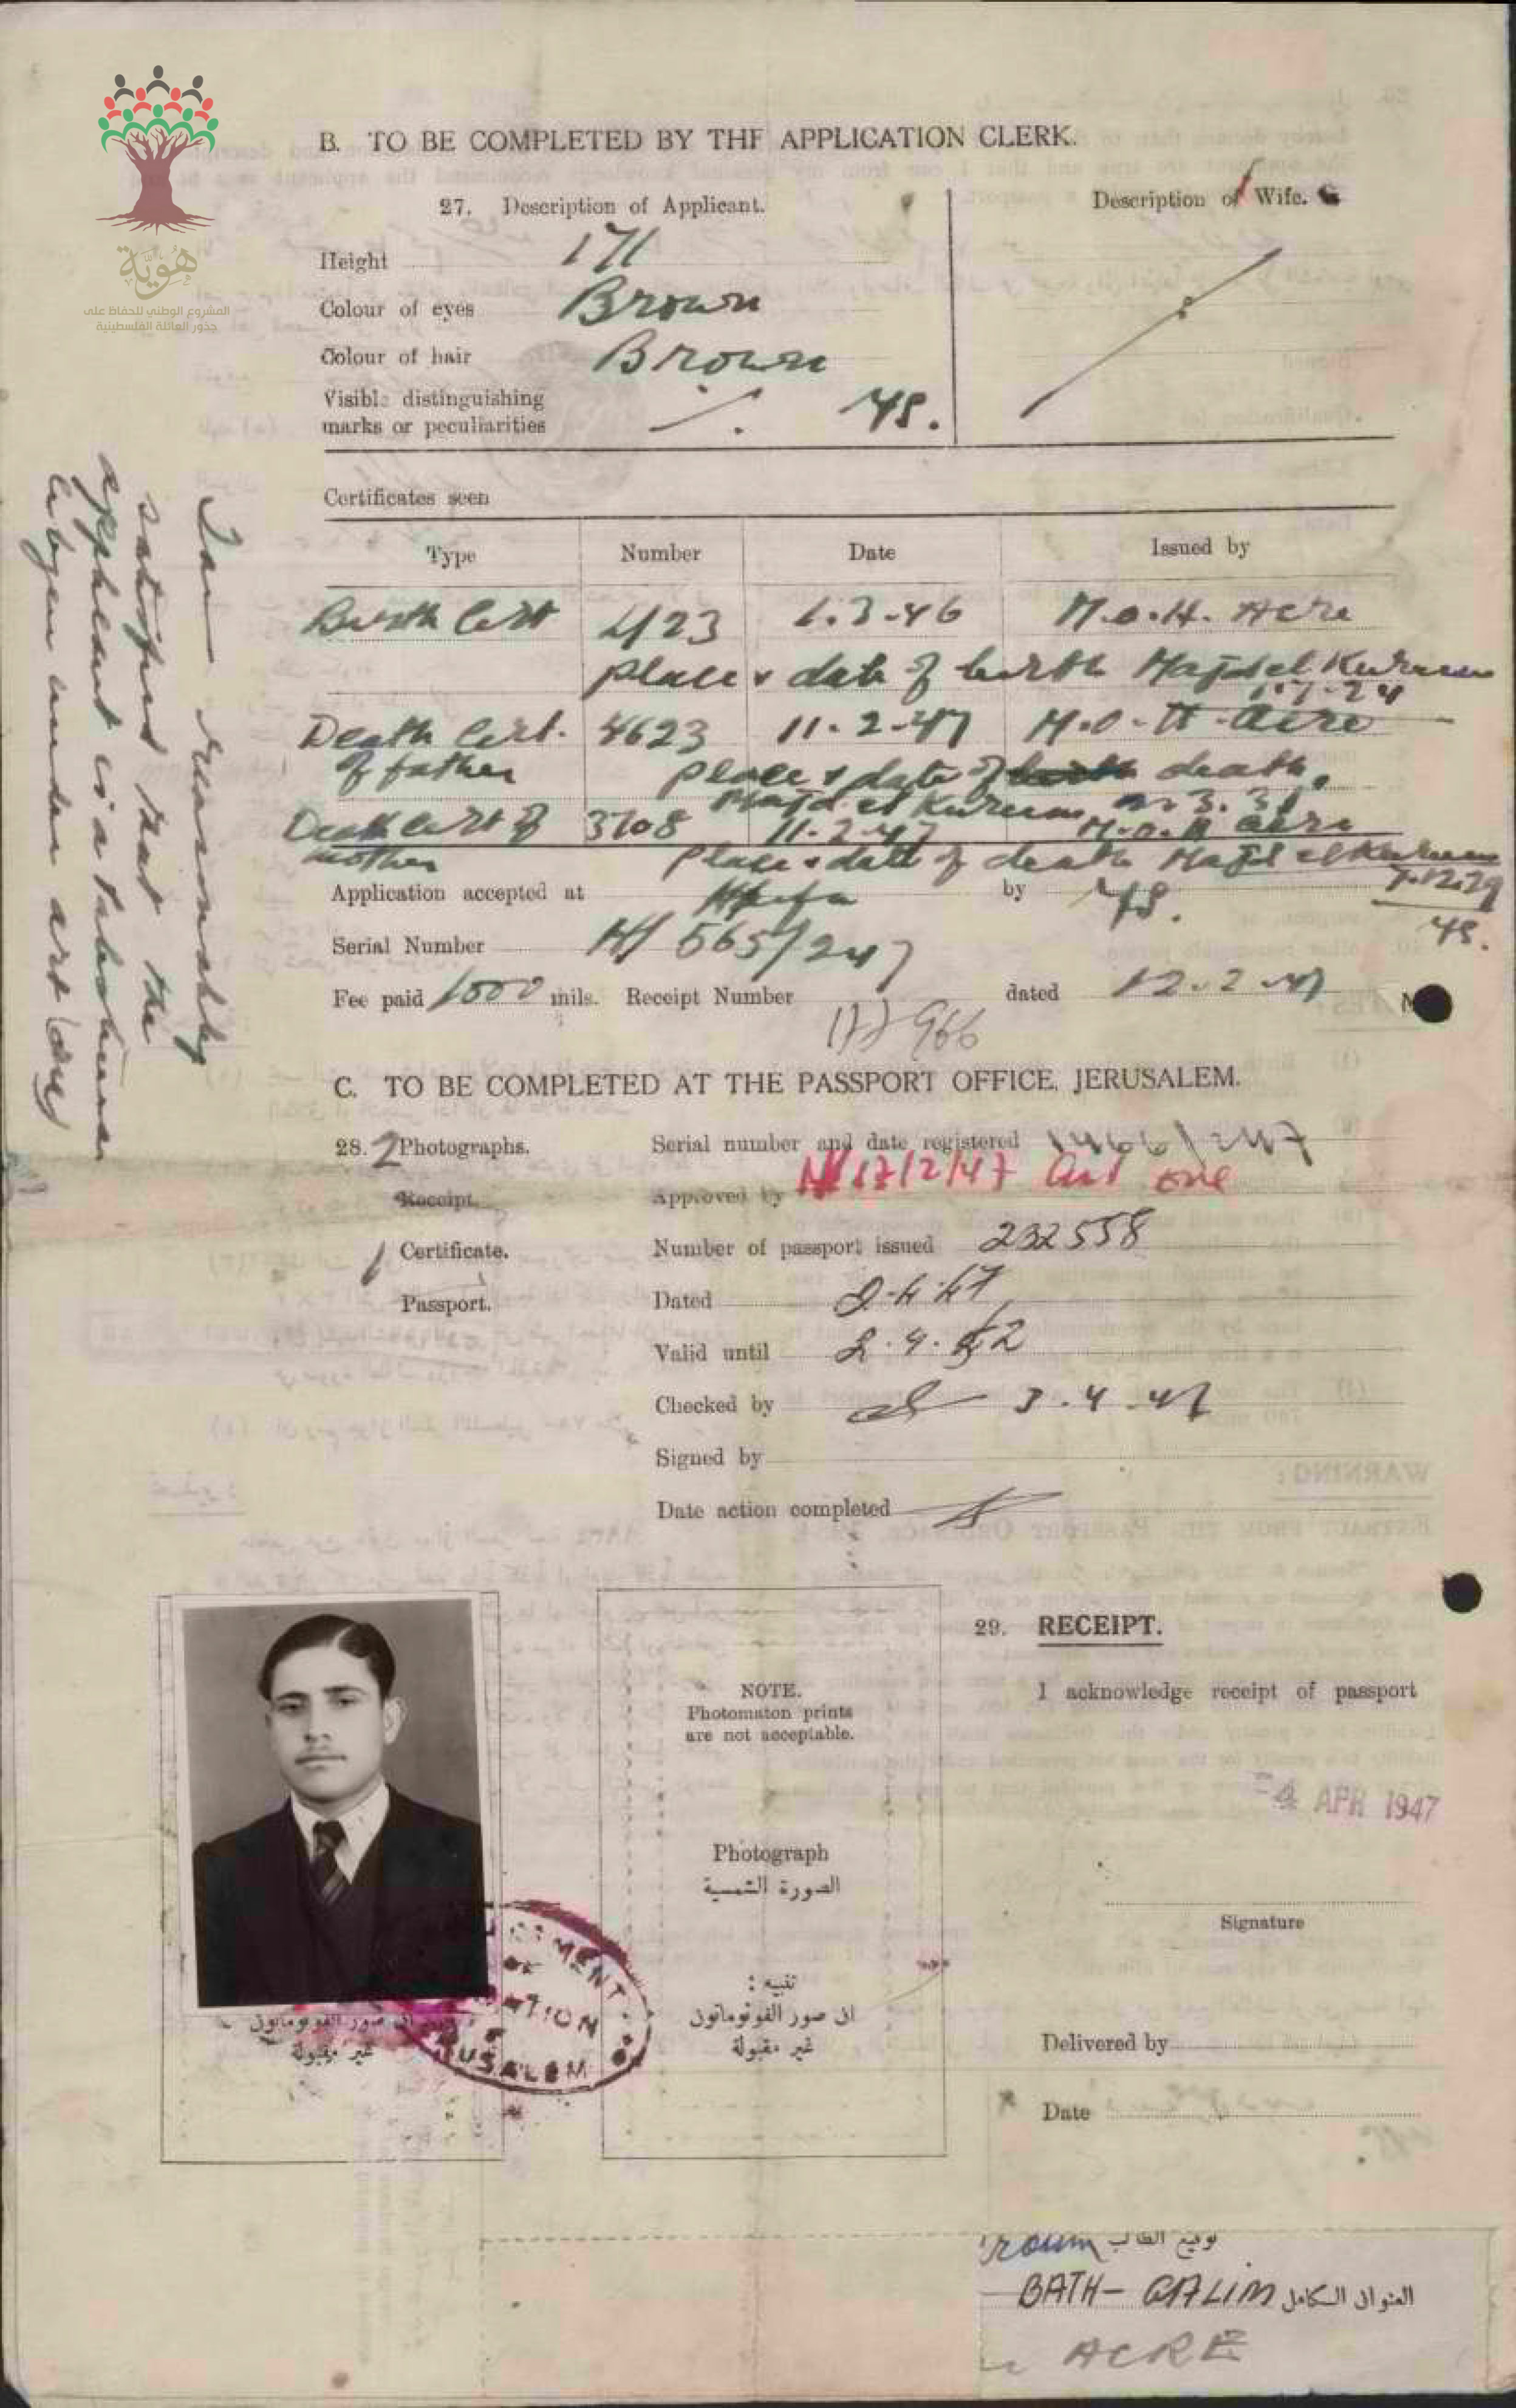 هوية
المشروع الوطني للحفاظ على
جذور العائلة الفلسطينية
B. TO BE COMPLETED BY THE APPLICATION CLERK.
27. Description of Applicant.
Description of Wife.
Height 171
Colour of eyes Brown
Colour of hair Brown
Visible distinguishing
marks or peculiarities
Certificates seen
Type Number Date Issued by
Birth Cert 423 1.3.46 M.O.H. Acre
place & date of birth Majdel Kurum
1.7.24
Death Cert. 4623 11-2-47 M.O.H. Acre
of father place & date of death.
Majd el Kurum 3. 31
Death Cert of 3708 11-2-47 M.O.H Acre
mother place & date of death Majd el Kurum
7.12.29
Application accepted at Haifa by
Serial Number H/ 565/247
Fee paid 1000 mils. Receipt Number 177966 dated 12.2.47
I am reasonably
satisfied that the
applicant is a Palestinian
citizen under art one
C. TO BE COMPLETED AT THE PASSPORT OFFICE, JERUSALEM.
28. 2 Photographs.
Serial number and date registered 1466/247
Receipt.
Approved by 17/2/47 Art one
1 Certificate.
Number of passport issued 232558
Passport.
Dated 2.4.47
Valid until 2.4.52
Checked by 3.4.47
Signed by
Date action completed
29. RECEIPT.
I acknowledge receipt of passport
NOTE.
Photomaton prints
are not acceptable.
4 APR 1947
Photograph
الصورة الشمسية
Signature
تنبيه :
ان صور الفوتوماتون
غير مقبولة
ان صور الفوتوماتون
غير مقبولة
Delivered by
Date
roum توقيع الطالب
BATH-GALIM العنوان الكامل
ACRE